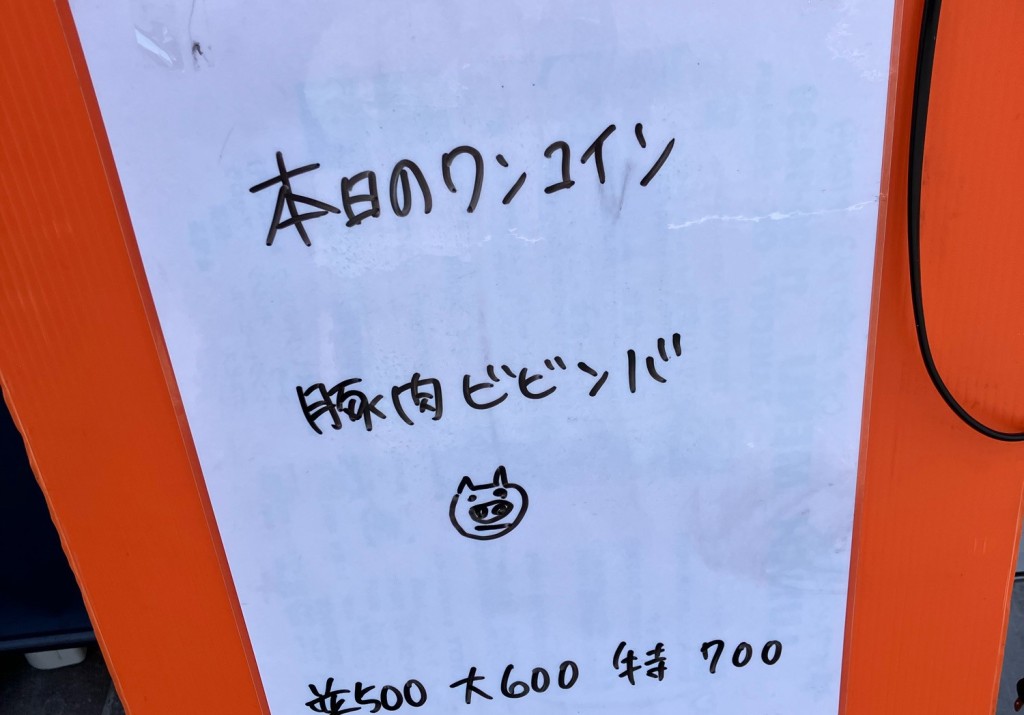 本日のワンコイン
豚肉ビビンバ
並500 大600 特 700